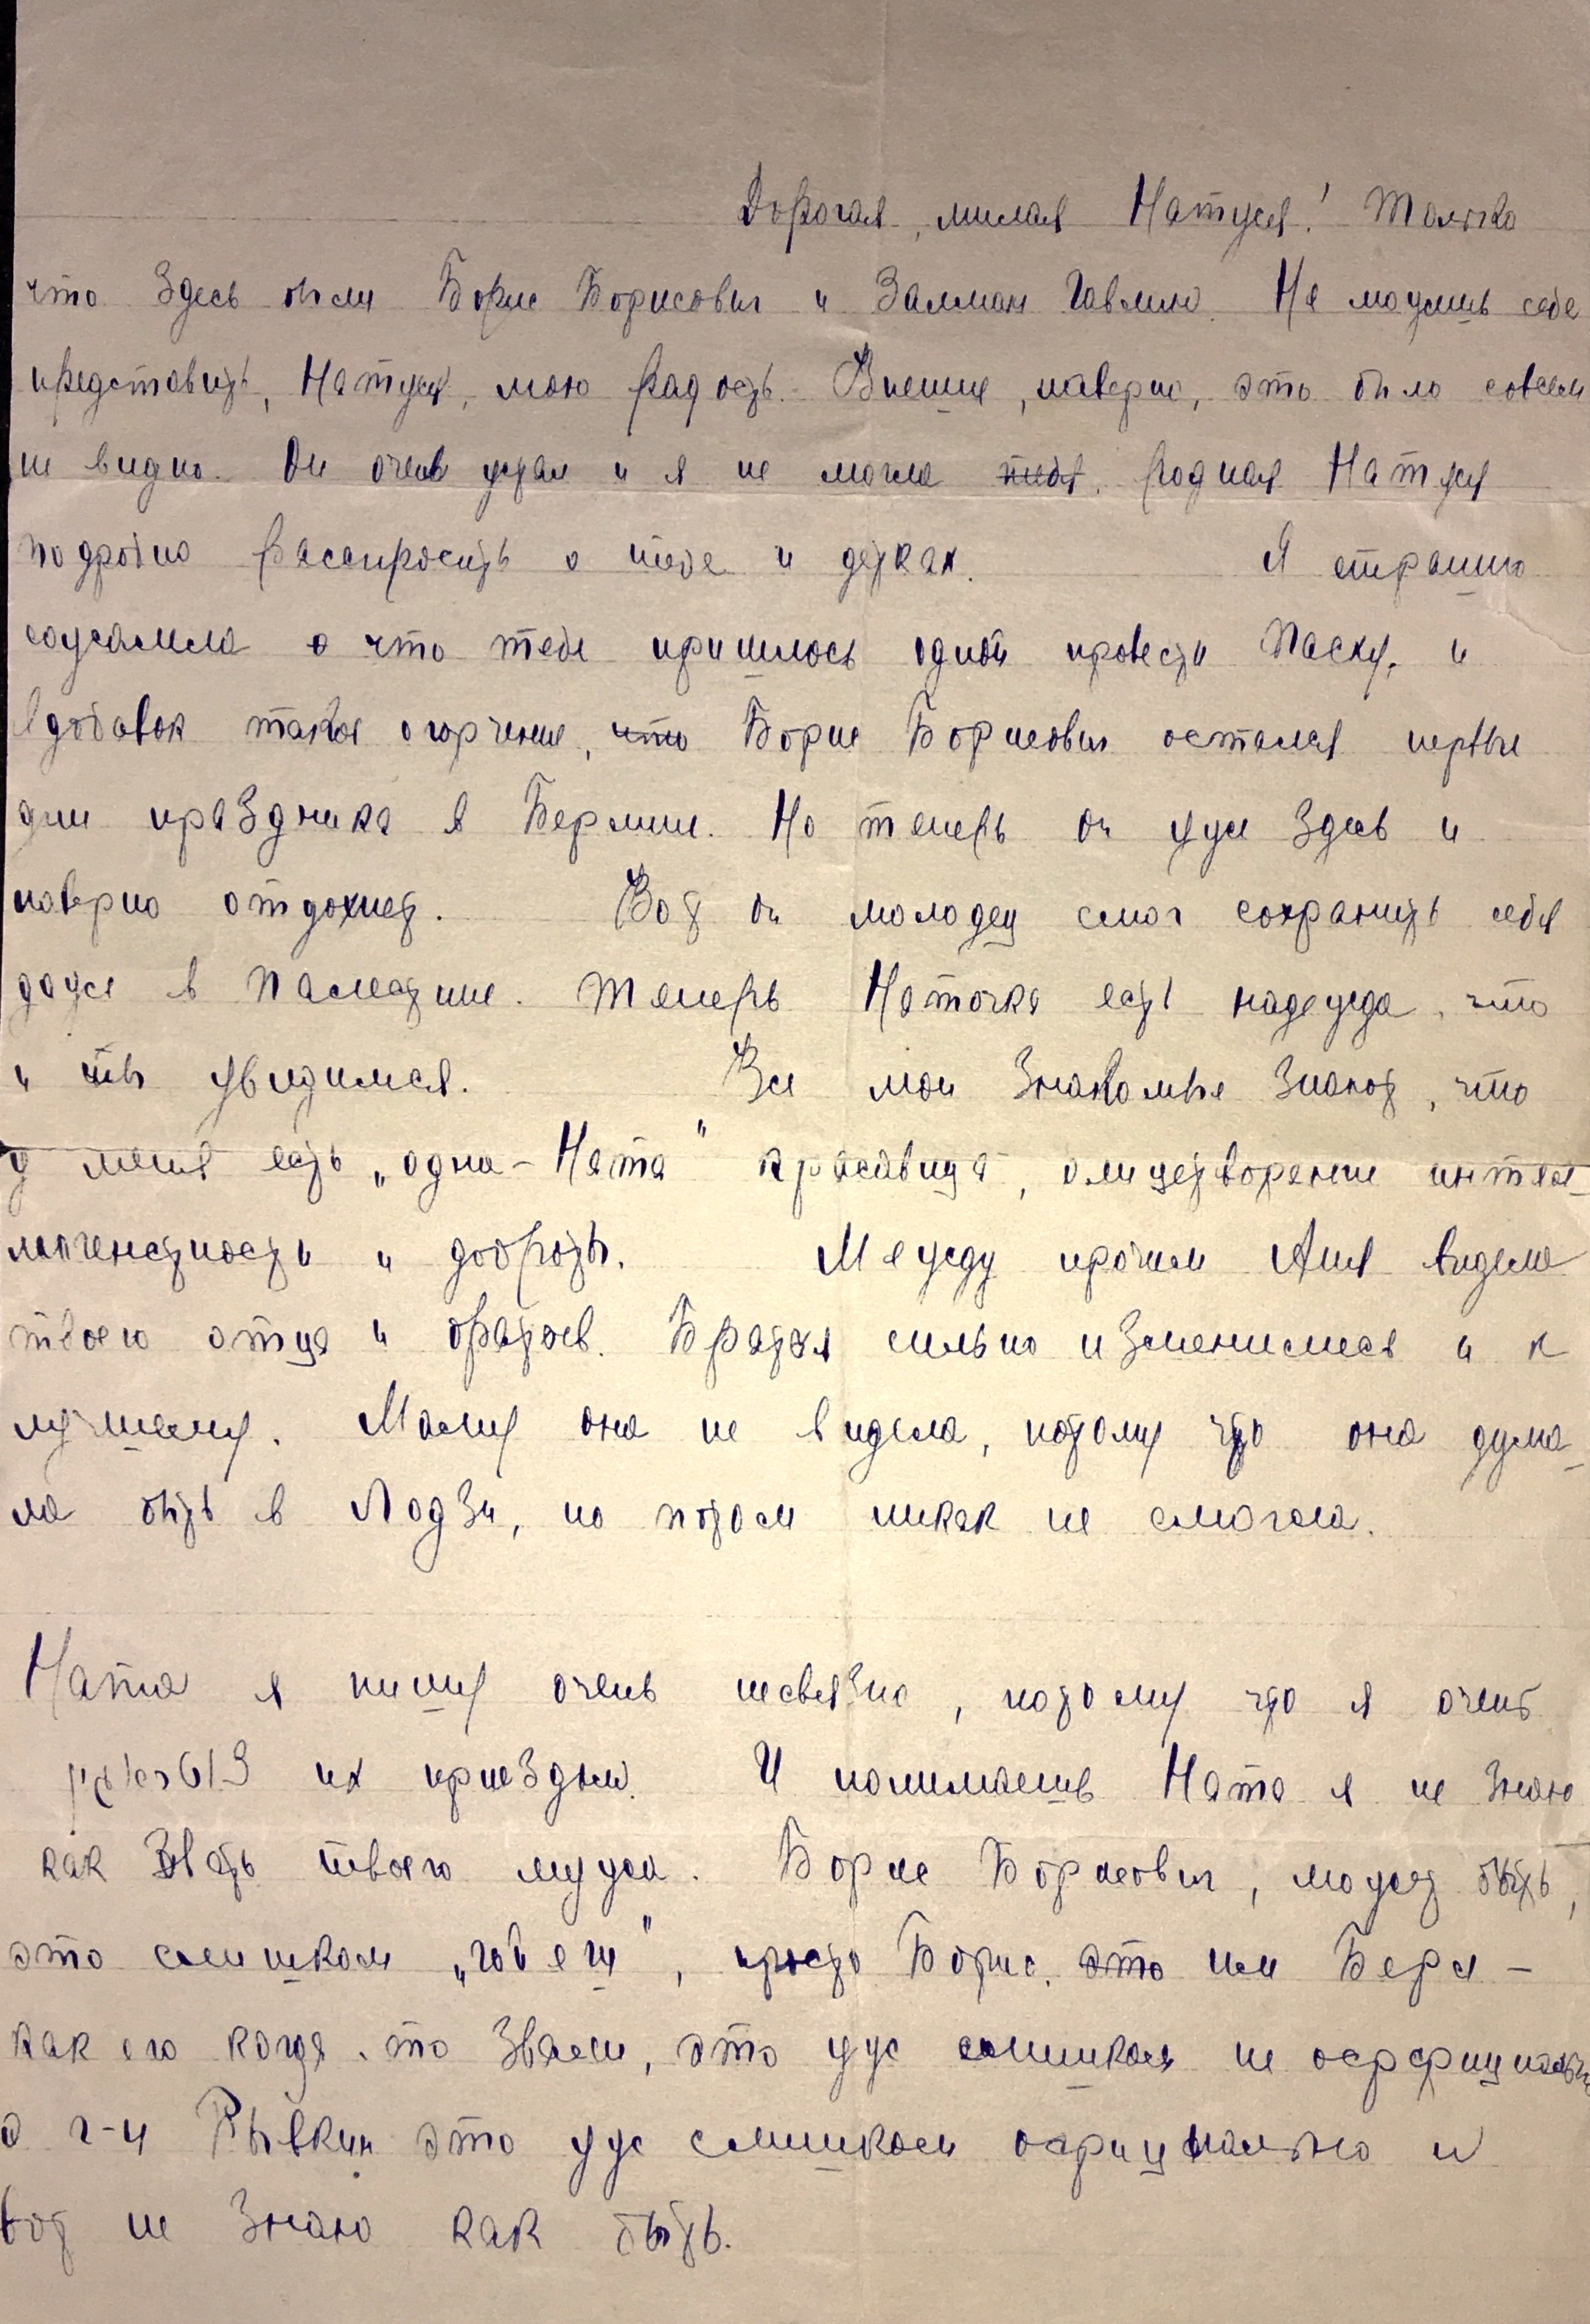 Дорогая, милая Натуся! Только
что здесь были Борис Борисович и Залман. Не можешь себе
представить, Натуся, мою радость. Внешне, наверно, это было совсем
не видно. Он очень устал и я не могла тебя, родная Натуся
подробно расспросить о тебе и детках. Я страшно
сожалела о что тебе пришлось одной провести Пасху, и
вдобавок такое огорчение, что Борис Борисович остался первые
дни праздника в Берлине. Но теперь он уже здесь и
наверно отдохнет. Вот он молодец смог сохранить себя
даже в Палестине. Теперь Наточка есть надежда, что
и мы увидимся. Все мои знакомые знают, что
у меня есть „одна-Ната" красавица, олицетворение интел-
лигентности и доброты. Между прочим Аня видела
твоего отца и братьев. Братья сильно изменились и к
лучшему. Маму она не видела, потому что она дума-
ла быть в Лодзи, но потом никак не смогла.
Ната я пишу очень несвязно, потому что я очень
их приездом. И понимаешь Ната я не знаю
как звать твоего мужа. Борис Борисович, может быть,
это слишком, просто Борис, это или Беря-
как его когда-то звали, это уж слишком не оффициально
а г-н Рывкин это уж слишком официально и
вот не знаю как быть.